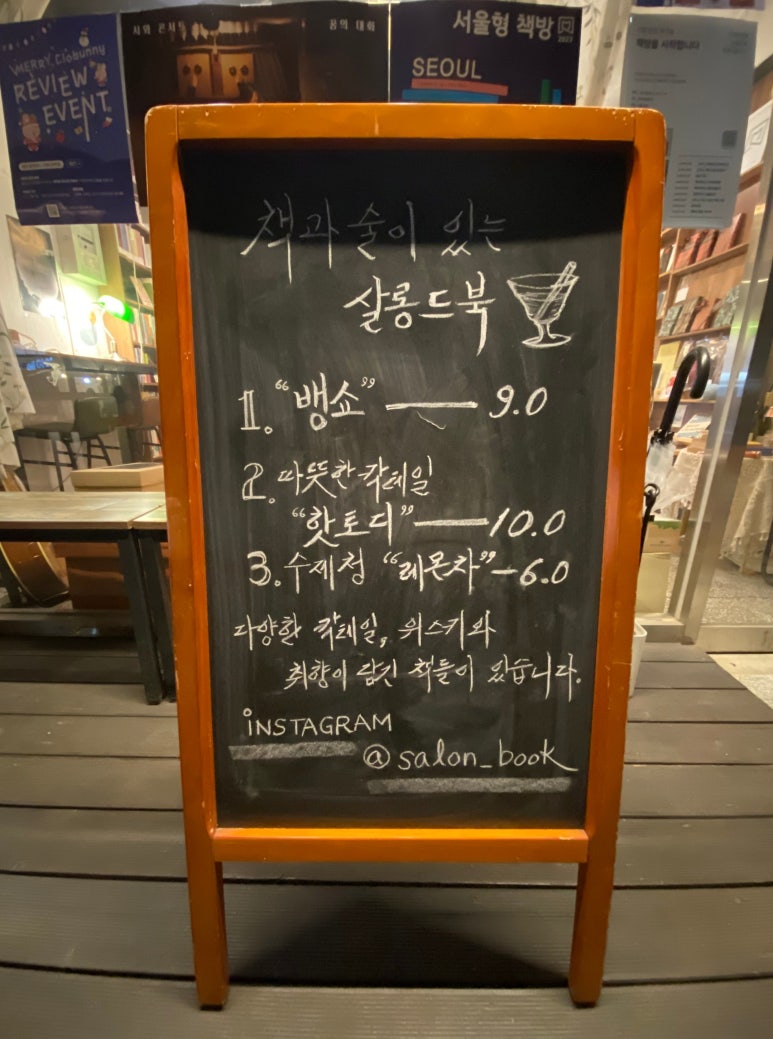 MERRY, Ciobunny
REVIEW
EVENT
시와 콘서트
꿈의 대화
서울형 책방
2023
SEOUL
책방을 시작합니다
책과 술이 있는
살롱드북
1. “뱅쇼” — 9.0
2. 따뜻한 칵테일
“핫토디” — 10.0
3. 수제청 “레몬차” – 6.0
다양한 칵테일, 위스키와
취향이 담긴 책들이 있습니다.
INSTAGRAM
@salon_book